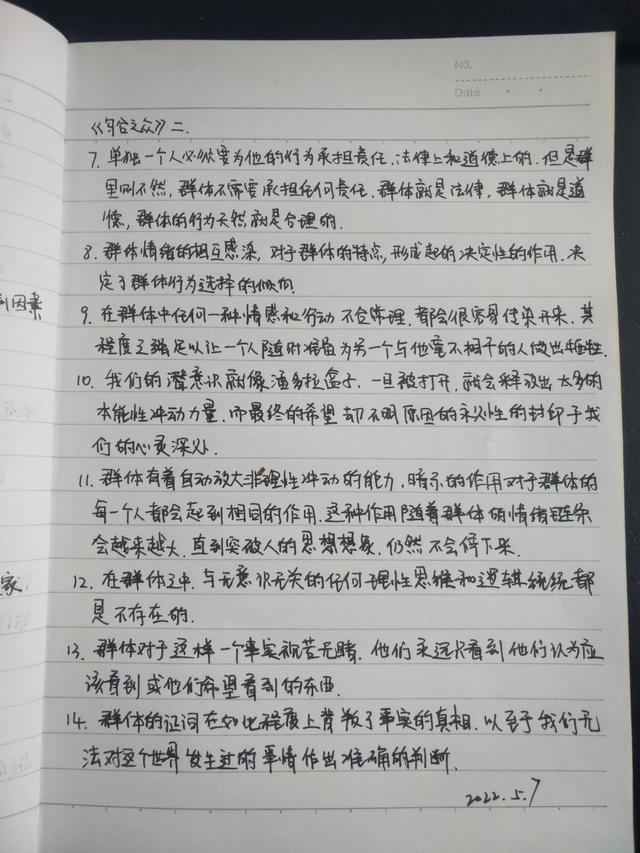 No.
Date
《乌合之众》二.
7. 单独一个人必须要为他的行为承担责任.法律上和道德上的.但是群
里则不然,群体不需要承担任何责任.群体就是法律,群体就是道
德,群体的行为天然就是合理的.
8. 群体情绪的相互感染,对于群体的特点,形成起的决定性的作用.决
定了群体行为选择的倾向
到因素
9. 在群体中任何一种情感和行动不合常理.都会很容易传染开来.其
程度之强足以让一个人随时准备为另一个与他毫不相干的人做出牺牲.
10. 我们的潜意识就像潘多拉盒子.一旦被打开.就会释放出太多的
本能性冲动力量.而最终的希望却不明原因的永久性的封印于我
们的心灵深处.
11. 群体有着自动放大非理性冲动的能力,暗示的作用对于群体的
每一个人都会起到相同的作用.这种作用随着群体的情绪链条
会越来越大.直到突破人的思想想象.仍然不会停下来.
家
12. 在群体之中.与无意识无关的任何理性思维和逻辑统统都
是不存在的.
13. 群体对于这样一个事实视若无睹.他们永远只看到他们认为应
该看到或他们希望看到的东西.
14. 群体的证词在如此程度上背叛了事实的真相.以至于我们无
法对这个世界发生过的事情作出准确的判断.
2022.5.7